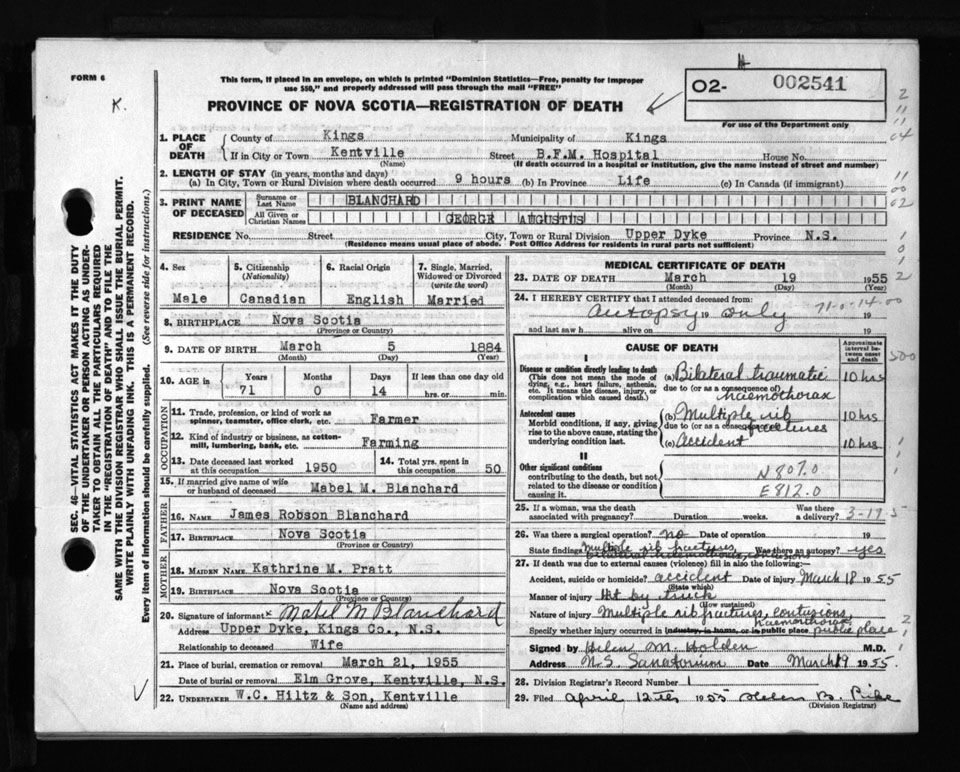 FORM 6
K.
This form, if placed in an envelope, on which is printed "Dominion Statistics—Free, penalty for improper
use $50," and properly addressed will pass through the mail "FREE"
PROVINCE OF NOVA SCOTIA—REGISTRATION OF DEATH
O2- 002541
For use of the Department only
SEC. 46—VITAL STATISTICS ACT MAKES IT THE DUTY
OF THE UNDERTAKER OR PERSON ACTING AS UNDER-
TAKER TO OBTAIN ALL THE PARTICULARS REQUIRED
IN THE "REGISTRATION OF DEATH" AND TO FILE THE
SAME WITH THE DIVISION REGISTRAR WHO SHALL ISSUE THE BURIAL PERMIT.
WRITE PLAINLY WITH UNFADING INK. THIS IS A PERMANENT RECORD.
Every item of Information should be carefully supplied. (See reverse side for instructions.)
1. PLACE OF DEATH
County of Kings Municipality of Kings
If in City or Town Kentville Street B.F.M. Hospital House No.
(Name) (If death occurred in a hospital or institution, give the name instead of street and number)
2. LENGTH OF STAY (in years, months and days)
(a) In City, Town or Rural Division where death occurred 9 hours (b) In Province Life (c) In Canada (if immigrant)
3. PRINT NAME OF DECEASED
Surname or Last Name BLANCHARD
All Given or Christian Names GEORGE AUGUSTUS
RESIDENCE No. Street City, Town or Rural Division Upper Dyke Province N.S.
(Residence means usual place of abode. Post Office Address for residents in rural parts not sufficient)
4. Sex 5. Citizenship (Nationality) 6. Racial Origin 7. Single, Married, Widowed or Divorced (write the word)
Male Canadian English Married
8. BIRTHPLACE Nova Scotia
(Province or Country)
9. DATE OF BIRTH March 5 1884
(Month) (Day) (Year)
10. AGE in Years Months Days If less than one day old
71 0 14 hrs. or min.
OCCUPATION
11. Trade, profession, or kind of work as
spinner, teamster, office clerk, etc. Farmer
12. Kind of industry or business, as cotton-
mill, lumbering, bank, etc. Farming
13. Date deceased last worked
at this occupation 1950
14. Total yrs. spent in
this occupation 50
15. If married give name of wife
or husband of deceased Mabel M. Blanchard
FATHER
16. NAME James Robson Blanchard
17. BIRTHPLACE Nova Scotia
(Province or Country)
MOTHER
18. MAIDEN NAME Kathrine M. Pratt
19. BIRTHPLACE Nova Scotia
(Province or Country)
20. Signature of informant x Mabel M Blanchard
Address Upper Dyke, Kings Co., N.S.
Relationship to deceased Wife
21. Place of burial, cremation or removal March 21, 1955
Date of burial or removal Elm Grove, Kentville, N.S.
22. UNDERTAKER W.C. Hiltz & Son, Kentville
(Name and address)
MEDICAL CERTIFICATE OF DEATH
23. DATE OF DEATH March 19 1955
(Month) (Day) (Year)
24. I HEREBY CERTIFY that I attended deceased from:
71-0-14-00
Autopsy 19 only 19
and last saw h alive on 19
CAUSE OF DEATH
Approximate interval between onset and death
I
Disease or condition directly leading to death
(This does not mean the mode of
dying, e.g., heart failure, asthenia,
etc. It means the disease, injury, or
complication which caused death.)
(a) Bilateral traumatic 10 hrs
due to (or as a consequence of)
haemothorax
Antecedent causes
Morbid conditions, if any, giving
rise to the above cause, stating the
underlying condition last.
(b) Multiple rib 10 hrs
due to (or as a consequence of)
fractures
(c) Accident 10 hrs
II
Other significant conditions
contributing to the death, but not
related to the disease or condition
causing it.
N807.0
E812.0
25. If a woman, was the death
associated with pregnancy? Duration weeks. Was there a delivery?
3-19-5
26. Was there a surgical operation? no Date of operation 19
State findings Multiple rib fractures, Was there an autopsy? yes
bilateral haemothorax, contusions
27. If death was due to external causes (violence) fill in also the following:
Accident, suicide or homicide? accident Date of injury March 18 1955
(State which)
Manner of injury Hit by truck
(How sustained)
Nature of injury Multiple rib fractures, contusions,
haemothorax
Specify whether injury occurred in industry, in home, or in public place public place
Signed by Helen M. Holden M.D.
Address N.S. Sanatorium Date March 19 1955.
28. Division Registrar's Record Number 1
29. Filed April 12th 1955 Helen B. Pike
(Division Registrar)